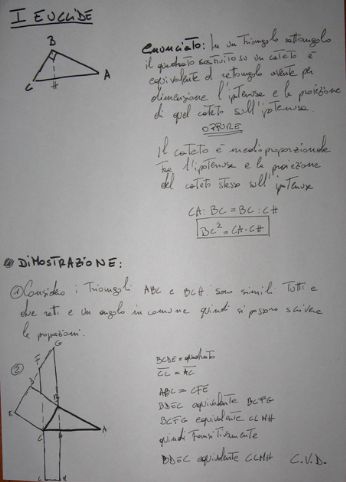 I EUCLIDE
B
C H A
Enunciato: In un triangolo rettangolo
il quadrato costruito su un cateto è
equivalente al rettangolo avente per
dimensione l'ipotenusa e la proiezione
di quel cateto sull'ipotenusa.
OPPURE
Il cateto è medio proporzionale
tra l'ipotenusa e la proiezione
del cateto stesso sull'ipotenusa
CA: BC = BC : CH
BC² = CA · CH
DIMOSTRAZIONE:
① Considero i triangoli ABC e BCH. Sono simili. Tutti e
due retti e un angolo in comune quindi si possono scrivere
le proporzioni.
②
G
F
D
B
E
C
A
BCDE = quadrato
CL = AC
ABC = CFE
BDEC equivalente BCFG
BCFG equivalente CLMH
quindi transitivamente
BDEC equivalente CLMH C.V.D.